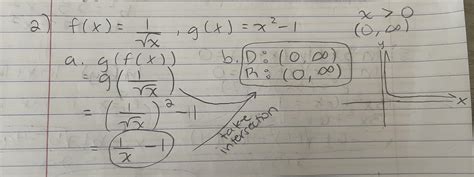 2) f(x) = 1/√x , g(x) = x² - 1
x > 0
(0, ∞)
a. g(f(x))
= g(1/√x)
= (1/√x)² - 1
= 1/x - 1
b. D: (0, ∞)
R: (0, ∞)
take
intersection
y
x